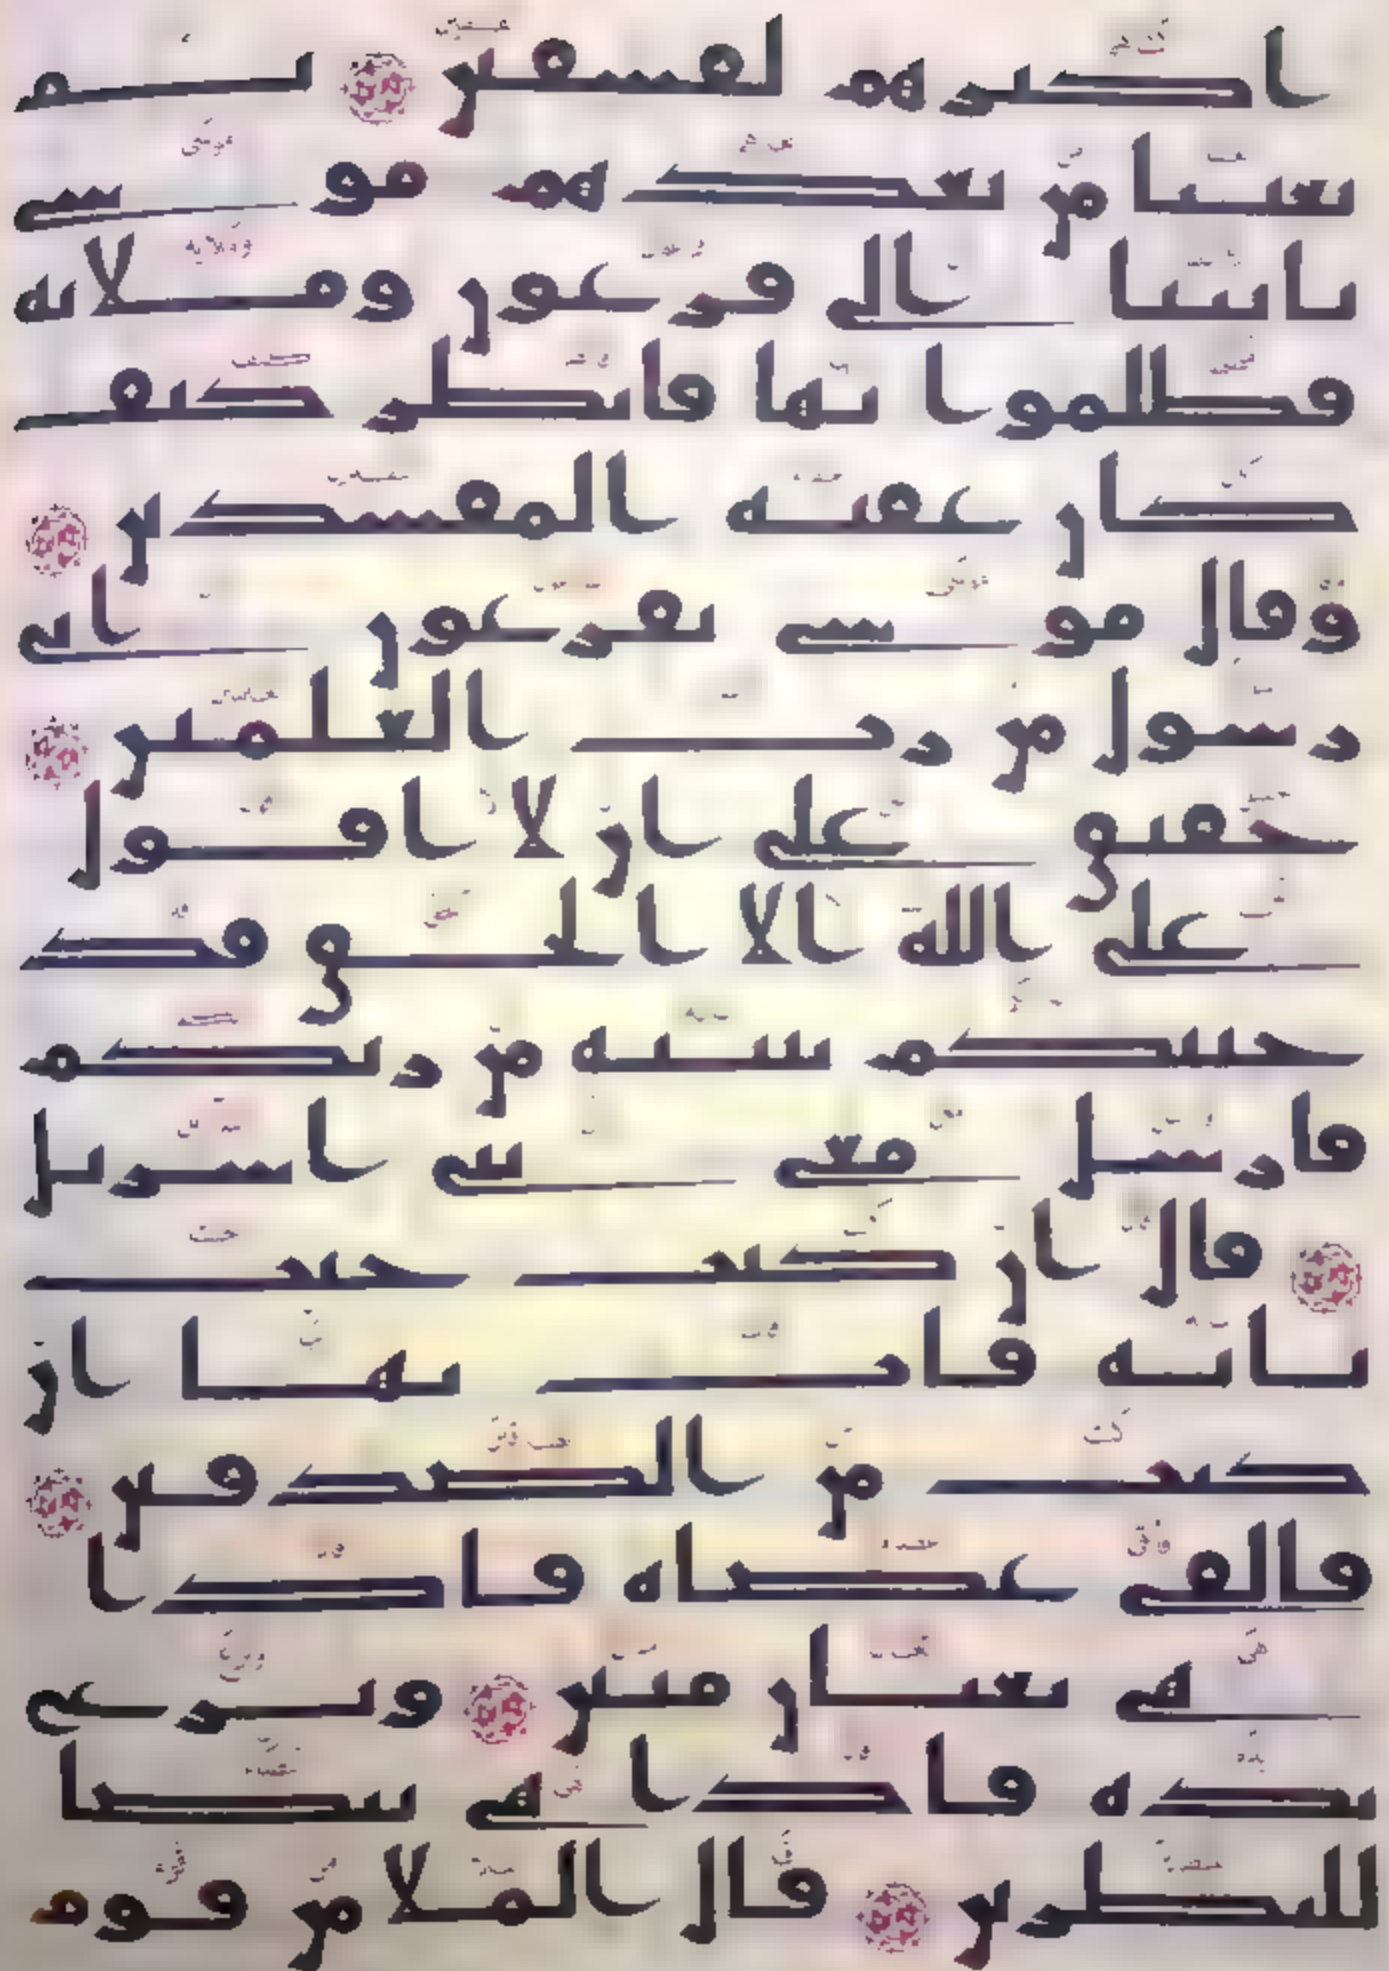 اكثرهم لفسقين ۝ ثم
بعثنا من بعدهم موسى
بايتنا الى فرعون وملايه
فظلموا بها فانظر كيف
كان عقبه المفسدين ۝
وقال موسى يفرعون انى
رسول من رب العلمين ۝
حقيق على ان لا اقول
على الله الا الحق قد
جيتكم ببينه من ربكم
فارسل معى بنى اسريل
۝ قال ان كنت جيت
بايه فات بها ان
كنت من الصدقين ۝
فالقى عصاه فاذا
هى ثعبان مبين ۝ ونزع
يده فاذا هى بيضا
للنظرين ۝ قال الملا من قوم